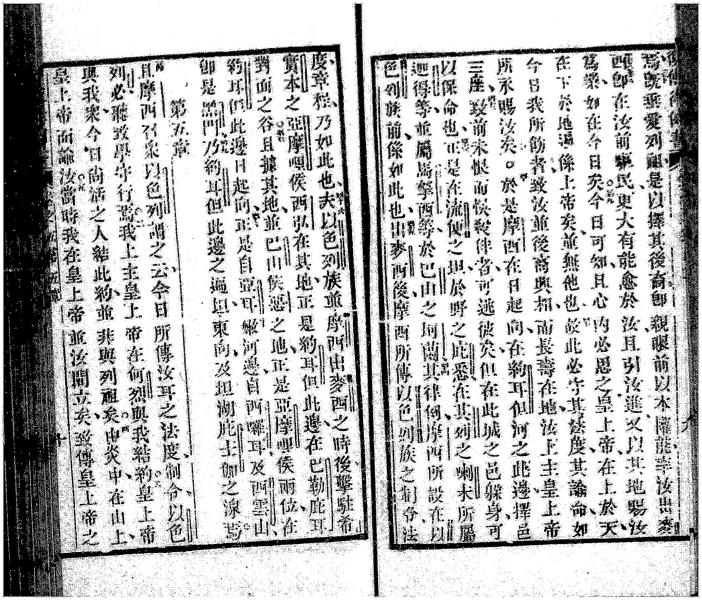 焉既垂愛列祖是以擇其後裔卽親眼前以本權能率汝出麥
西卽在汝前驅民更大有能愈於汝且引汝進又以其地賜汝
爲業如在今日矣今日可知且心內必思之皇上帝在上於天
在下於地遍係上帝矣並無他也故此必守其法度其諭命如
今日我所飭者致汝並後裔興相而長壽在地法上主皇上帝
所永賜汝矣於是摩西在日起向在約耳但河之此邊擇邑
三座致前未恨而悞殺伴者可逃彼矣但在此城之邑躲身可
以保命也正是在流便之坦於野之庇悉在其列之喇末所屬
迦得等並屬馬拿西等於巴山之坷蘭其律例摩西所設在以
色列族前係如此也出麥西後摩西所傳以色列族之制令法
度章程乃如此也夫以色列族並摩西出麥西之時後擊駐希
實本之亞摩哩侯西弘在其地正是約耳但此邊在巴勒庇耳
對面之谷且據其地並巴山侯惡之地正是亞摩哩侯兩位在
約耳但此邊日起向正是自亞耳嫩河邊自西囉耳及西雲山
卽是黑門乃約耳但此邊之遍坦東向及坦湖庇士伽之源焉
第五章
且摩西召衆以色列謂之云今日所傳汝耳之法度制令以色
列必聽致學守行焉我上主皇上帝在何烈與我結約皇上帝
與我衆今日尚活之人結此約並非與列祖矣由炎中在山上
皇上帝面諭汝當時我在皇上帝並汝間立矣致傳皇上帝之